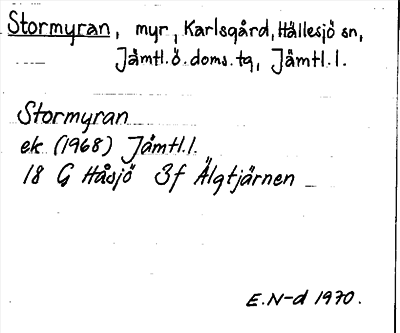 Stormyran, myr, Karlsgård, Hällesjö sn,
Jämtl.ö.doms.tg, Jämtl.l.
Stormyran
ek. (1968) Jämtl.l.
18 G Håsjö 3f Älgtjärnen
E.N-d 1970.